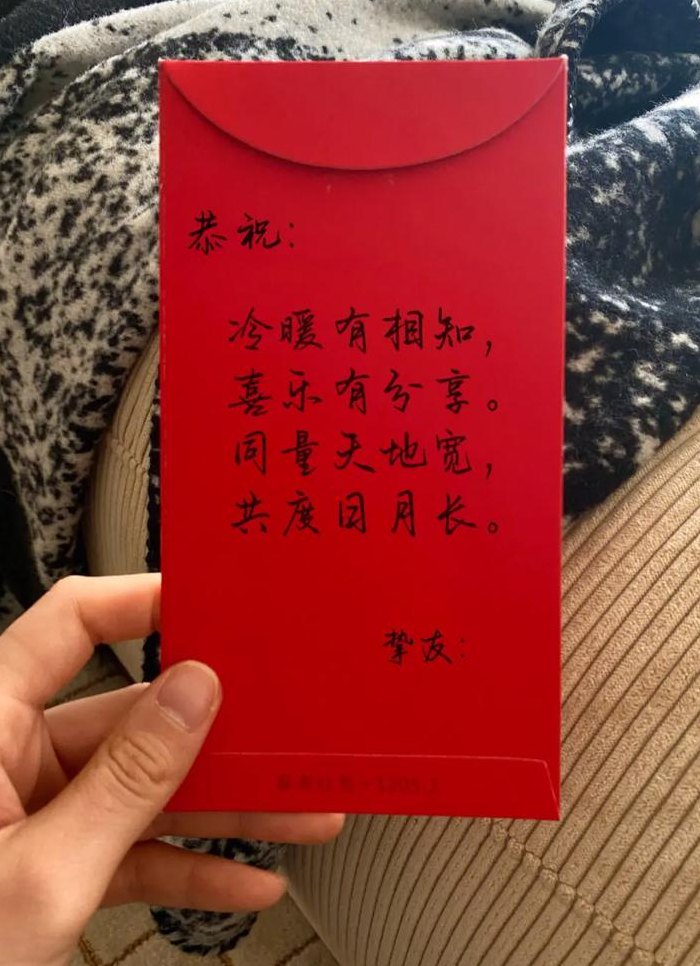 恭祝：
冷暖有相知，
喜乐有分享。
同量天地宽，
共度日月长。
挚友：